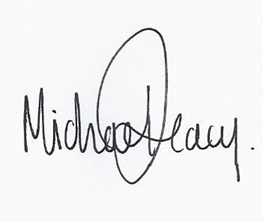 Michael Deacy.